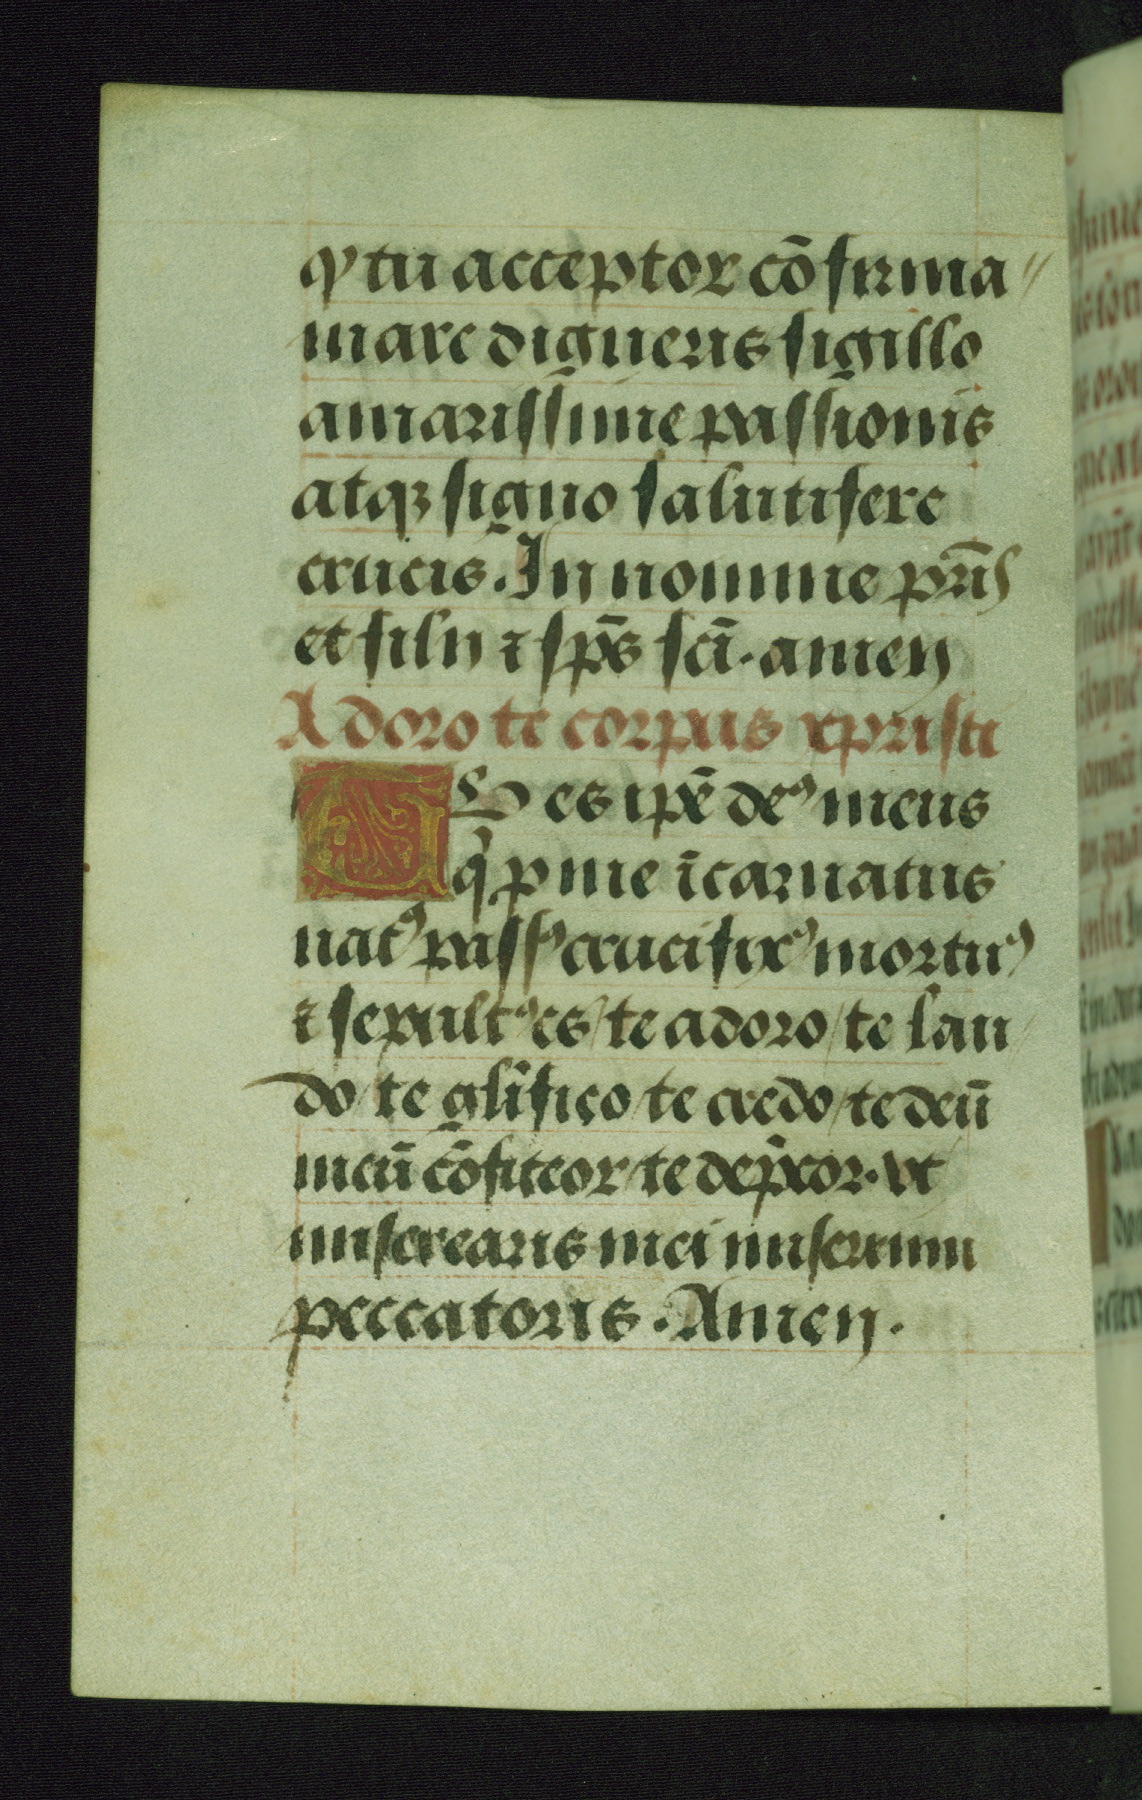 qꝫ tu acceptor cō firma〃
mare digneris sigillo
amarissime passionis
atqꝫ signo salutifere
crucis. In nomine pr̄is
et filij ⁊ sp̄s sc̄i. amen
Adoro te corpus xp̄risti
TV es ip̄e deꝰ meus
q̇ p me īcarnatus
natꝰ passꝰ crucifixꝰ mortuꝰ
⁊ sepultꝰ es / te adoro / te lau/
do / te glīfico / te credo / te deū
meū cōfiteor / te dep̄cor. vt
miserearis mei miserrimi
peccatoris. Amen.